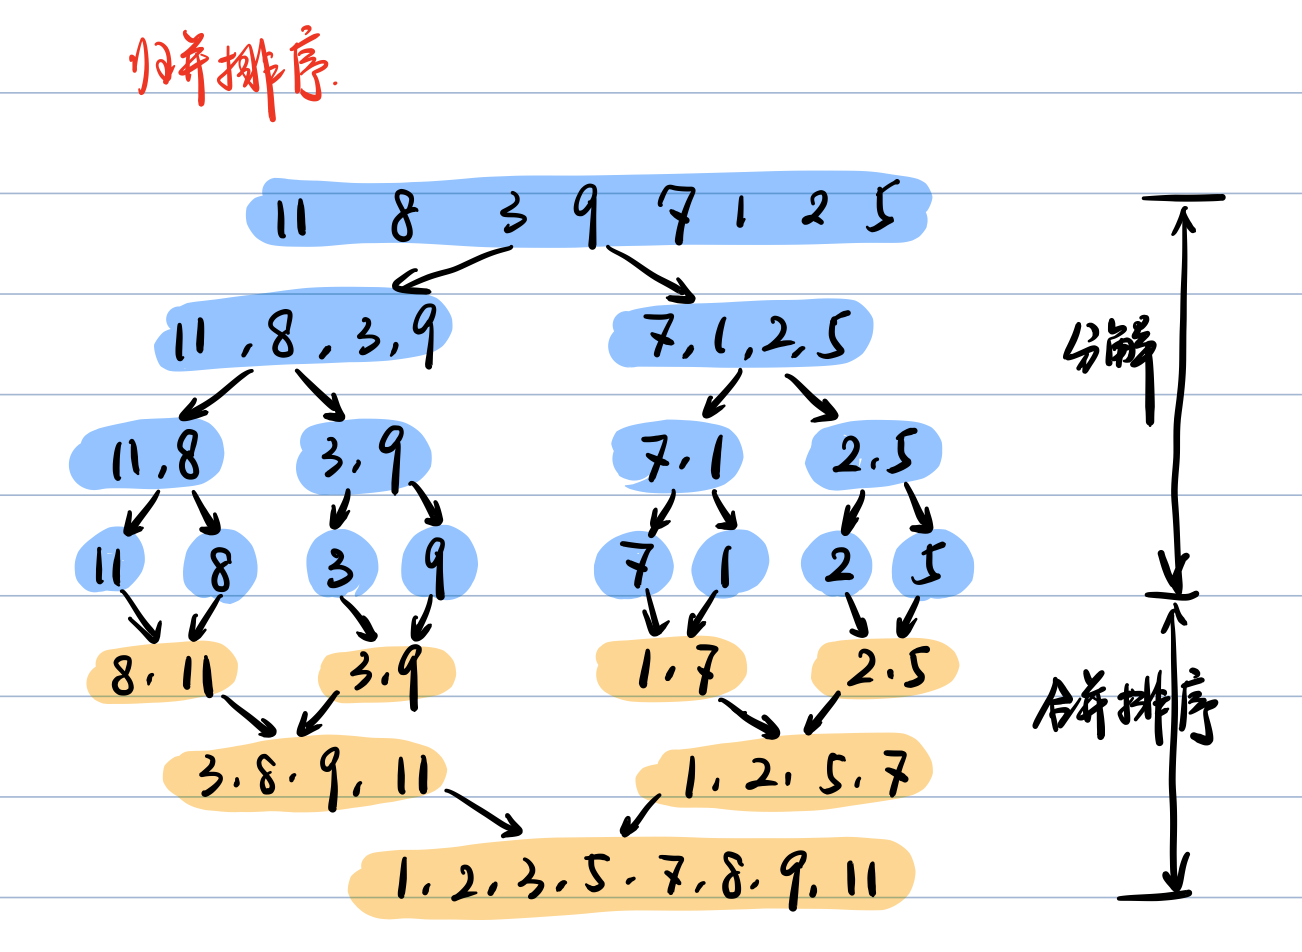 归并排序.
11 8 3 9 7 1 2 5
11,8,3,9 7,1,2,5
分解
11,8 3,9 7,1 2.5
11 8 3 9 7 1 2 5
8.11 3.9 1.7 2.5
合并排序
3.8.9.11 1.2.5.7
1.2.3.5.7.8.9.11